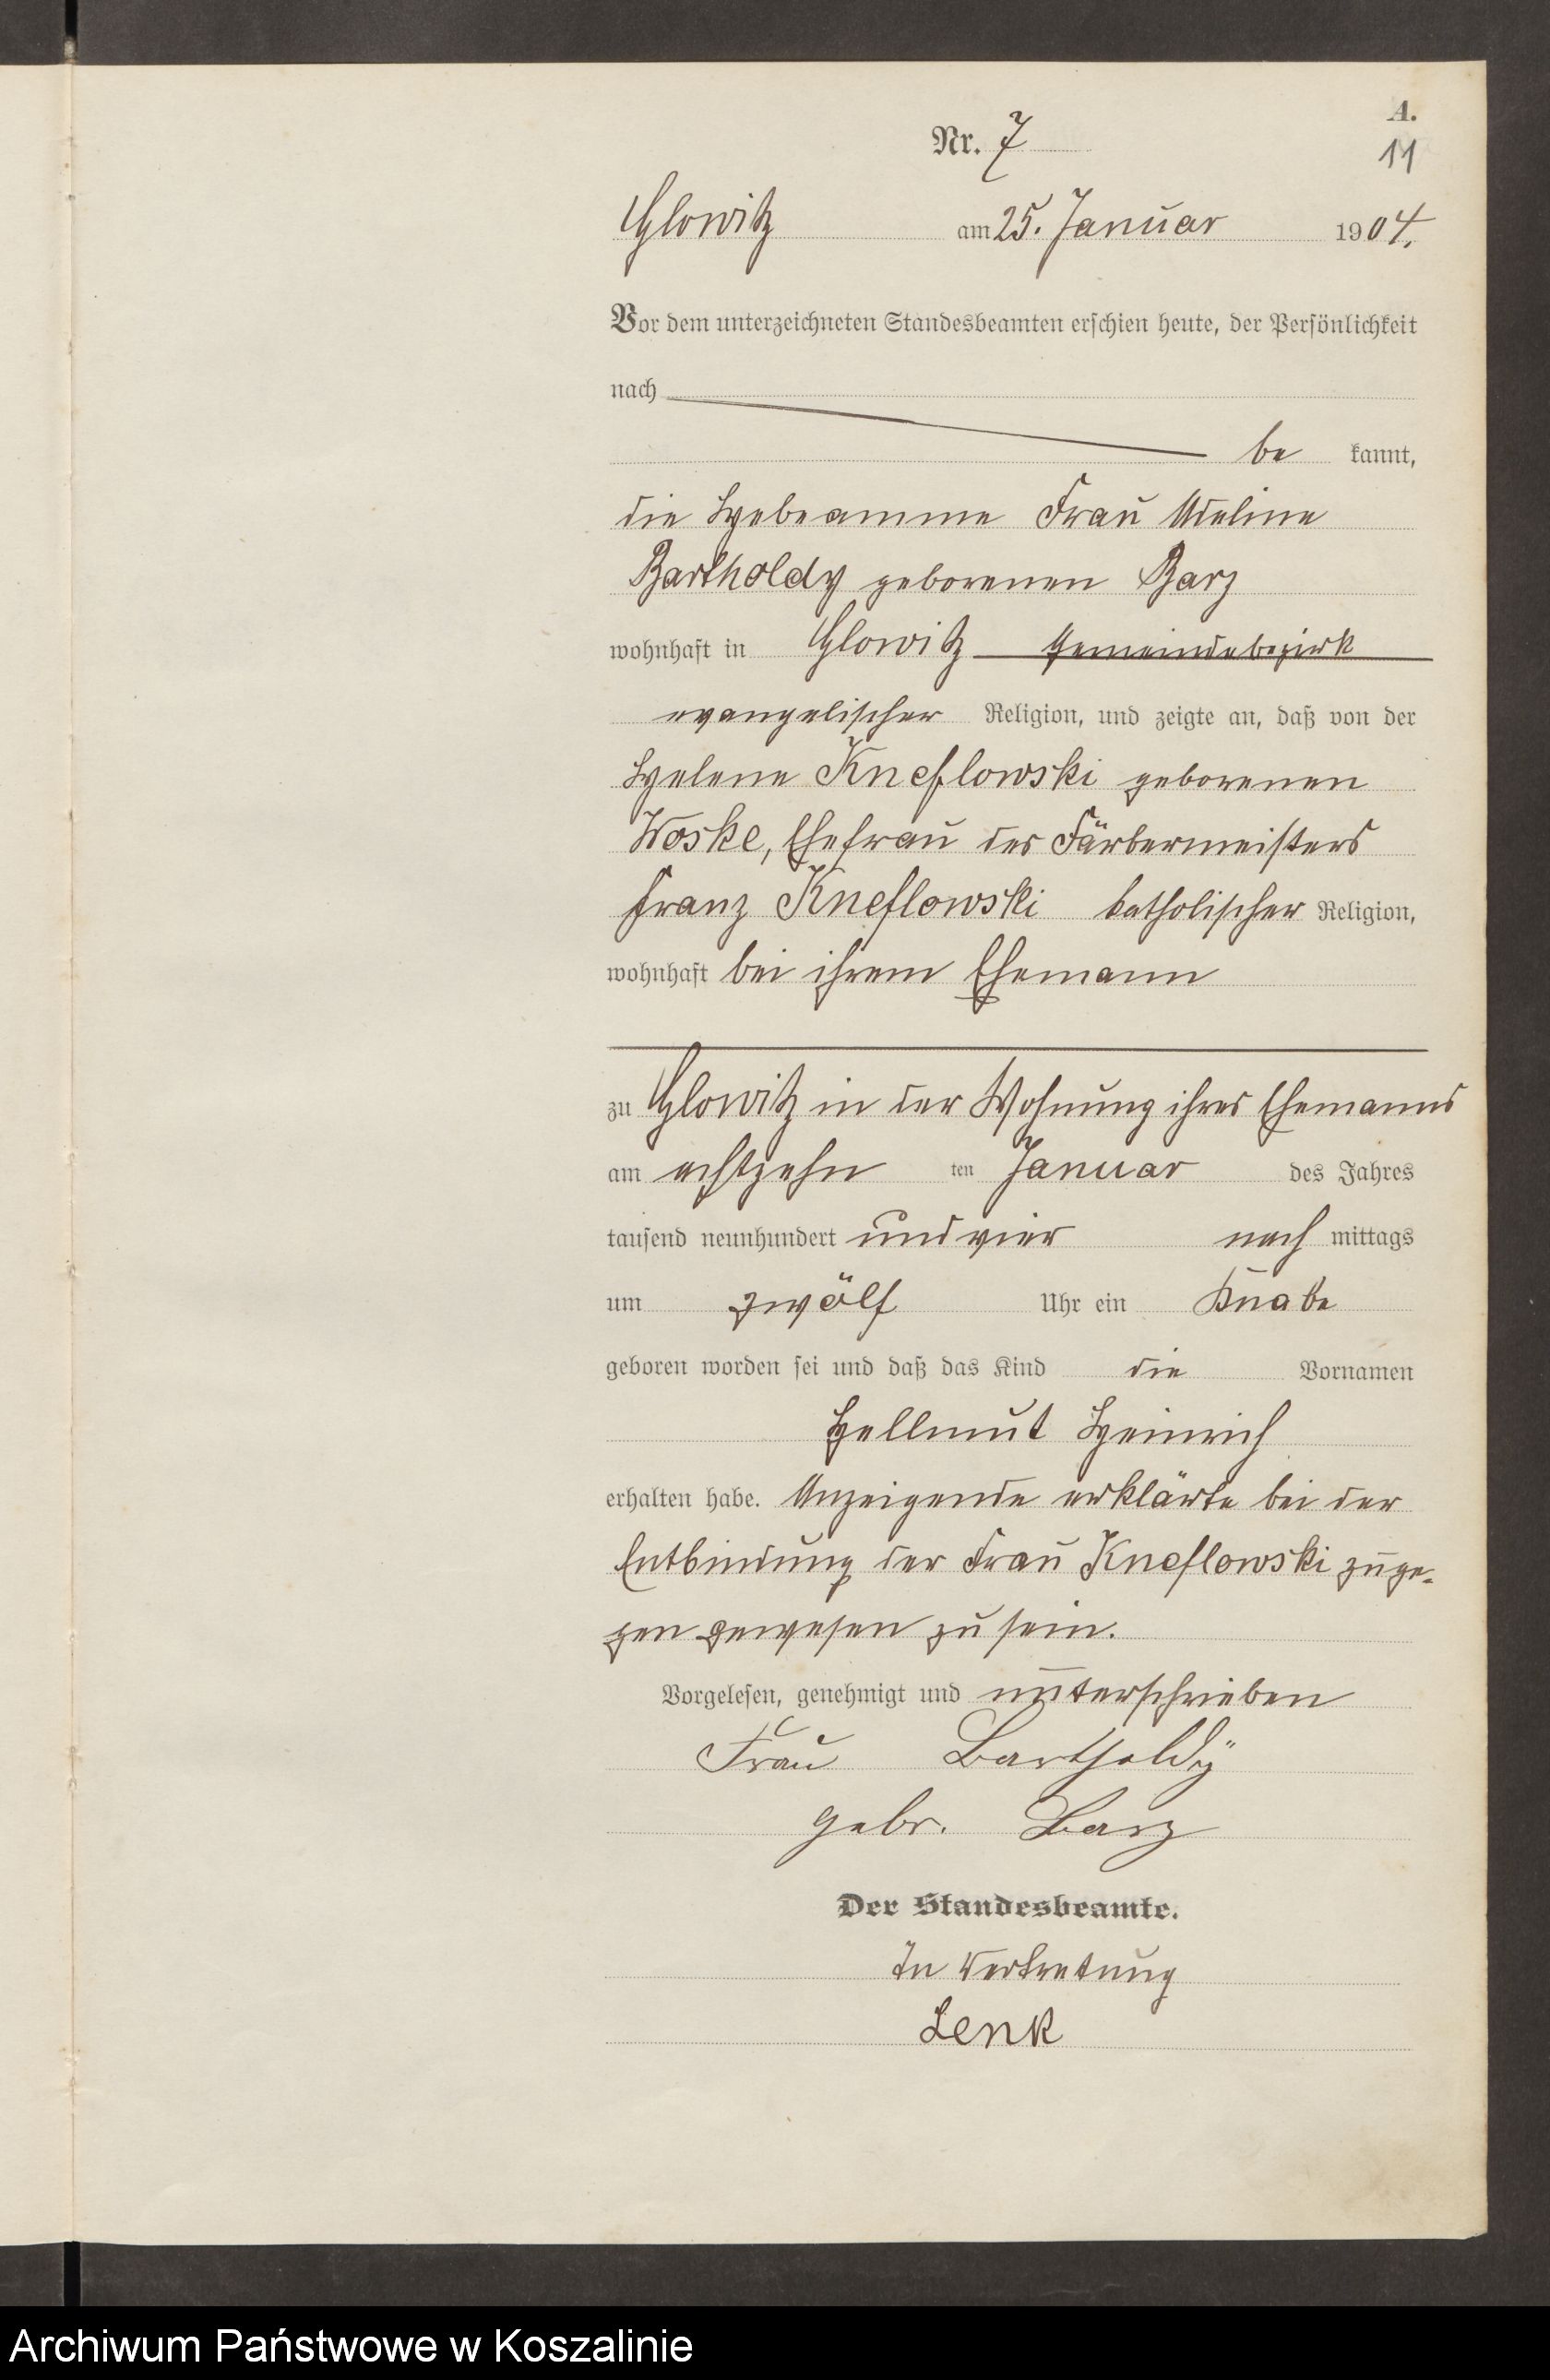 A.
Nr. 7
11
Glowitz am 25. Januar 1904.
Vor dem unterzeichneten Standesbeamten erschien heute, der Persönlichkeit
nach
be kannt,
die Hebeamme Frau Adeline
Bartholdy geborenen Barz
wohnhaft in Glowitz Gemeindebezirk
evangelischer Religion, und zeigte an, daß von der
Helene Kneflowski geborenen
Woske, Ehefrau des Färbermeisters
Franz Kneflowski katholischer Religion,
wohnhaft bei ihrem Ehemann
zu Glowitz in der Wohnung ihres Ehemanns
am achtzehn ten Januar des Jahres
tausend neunhundert und vier nach mittags
um zwölf Uhr ein Knabe
geboren worden sei und daß das Kind die Vornamen
Hellmut Heinrich
erhalten habe. Anzeigende erklärte bei der
Entbindung der Frau Kneflowski zuge-
gen gewesen zu sein.
Vorgelesen, genehmigt und unterschrieben
Frau Bartholdÿ
gebr. Barz
Der Standesbeamte.
In Vertretung
Lenk
Archiwum Państwowe w Koszalinie